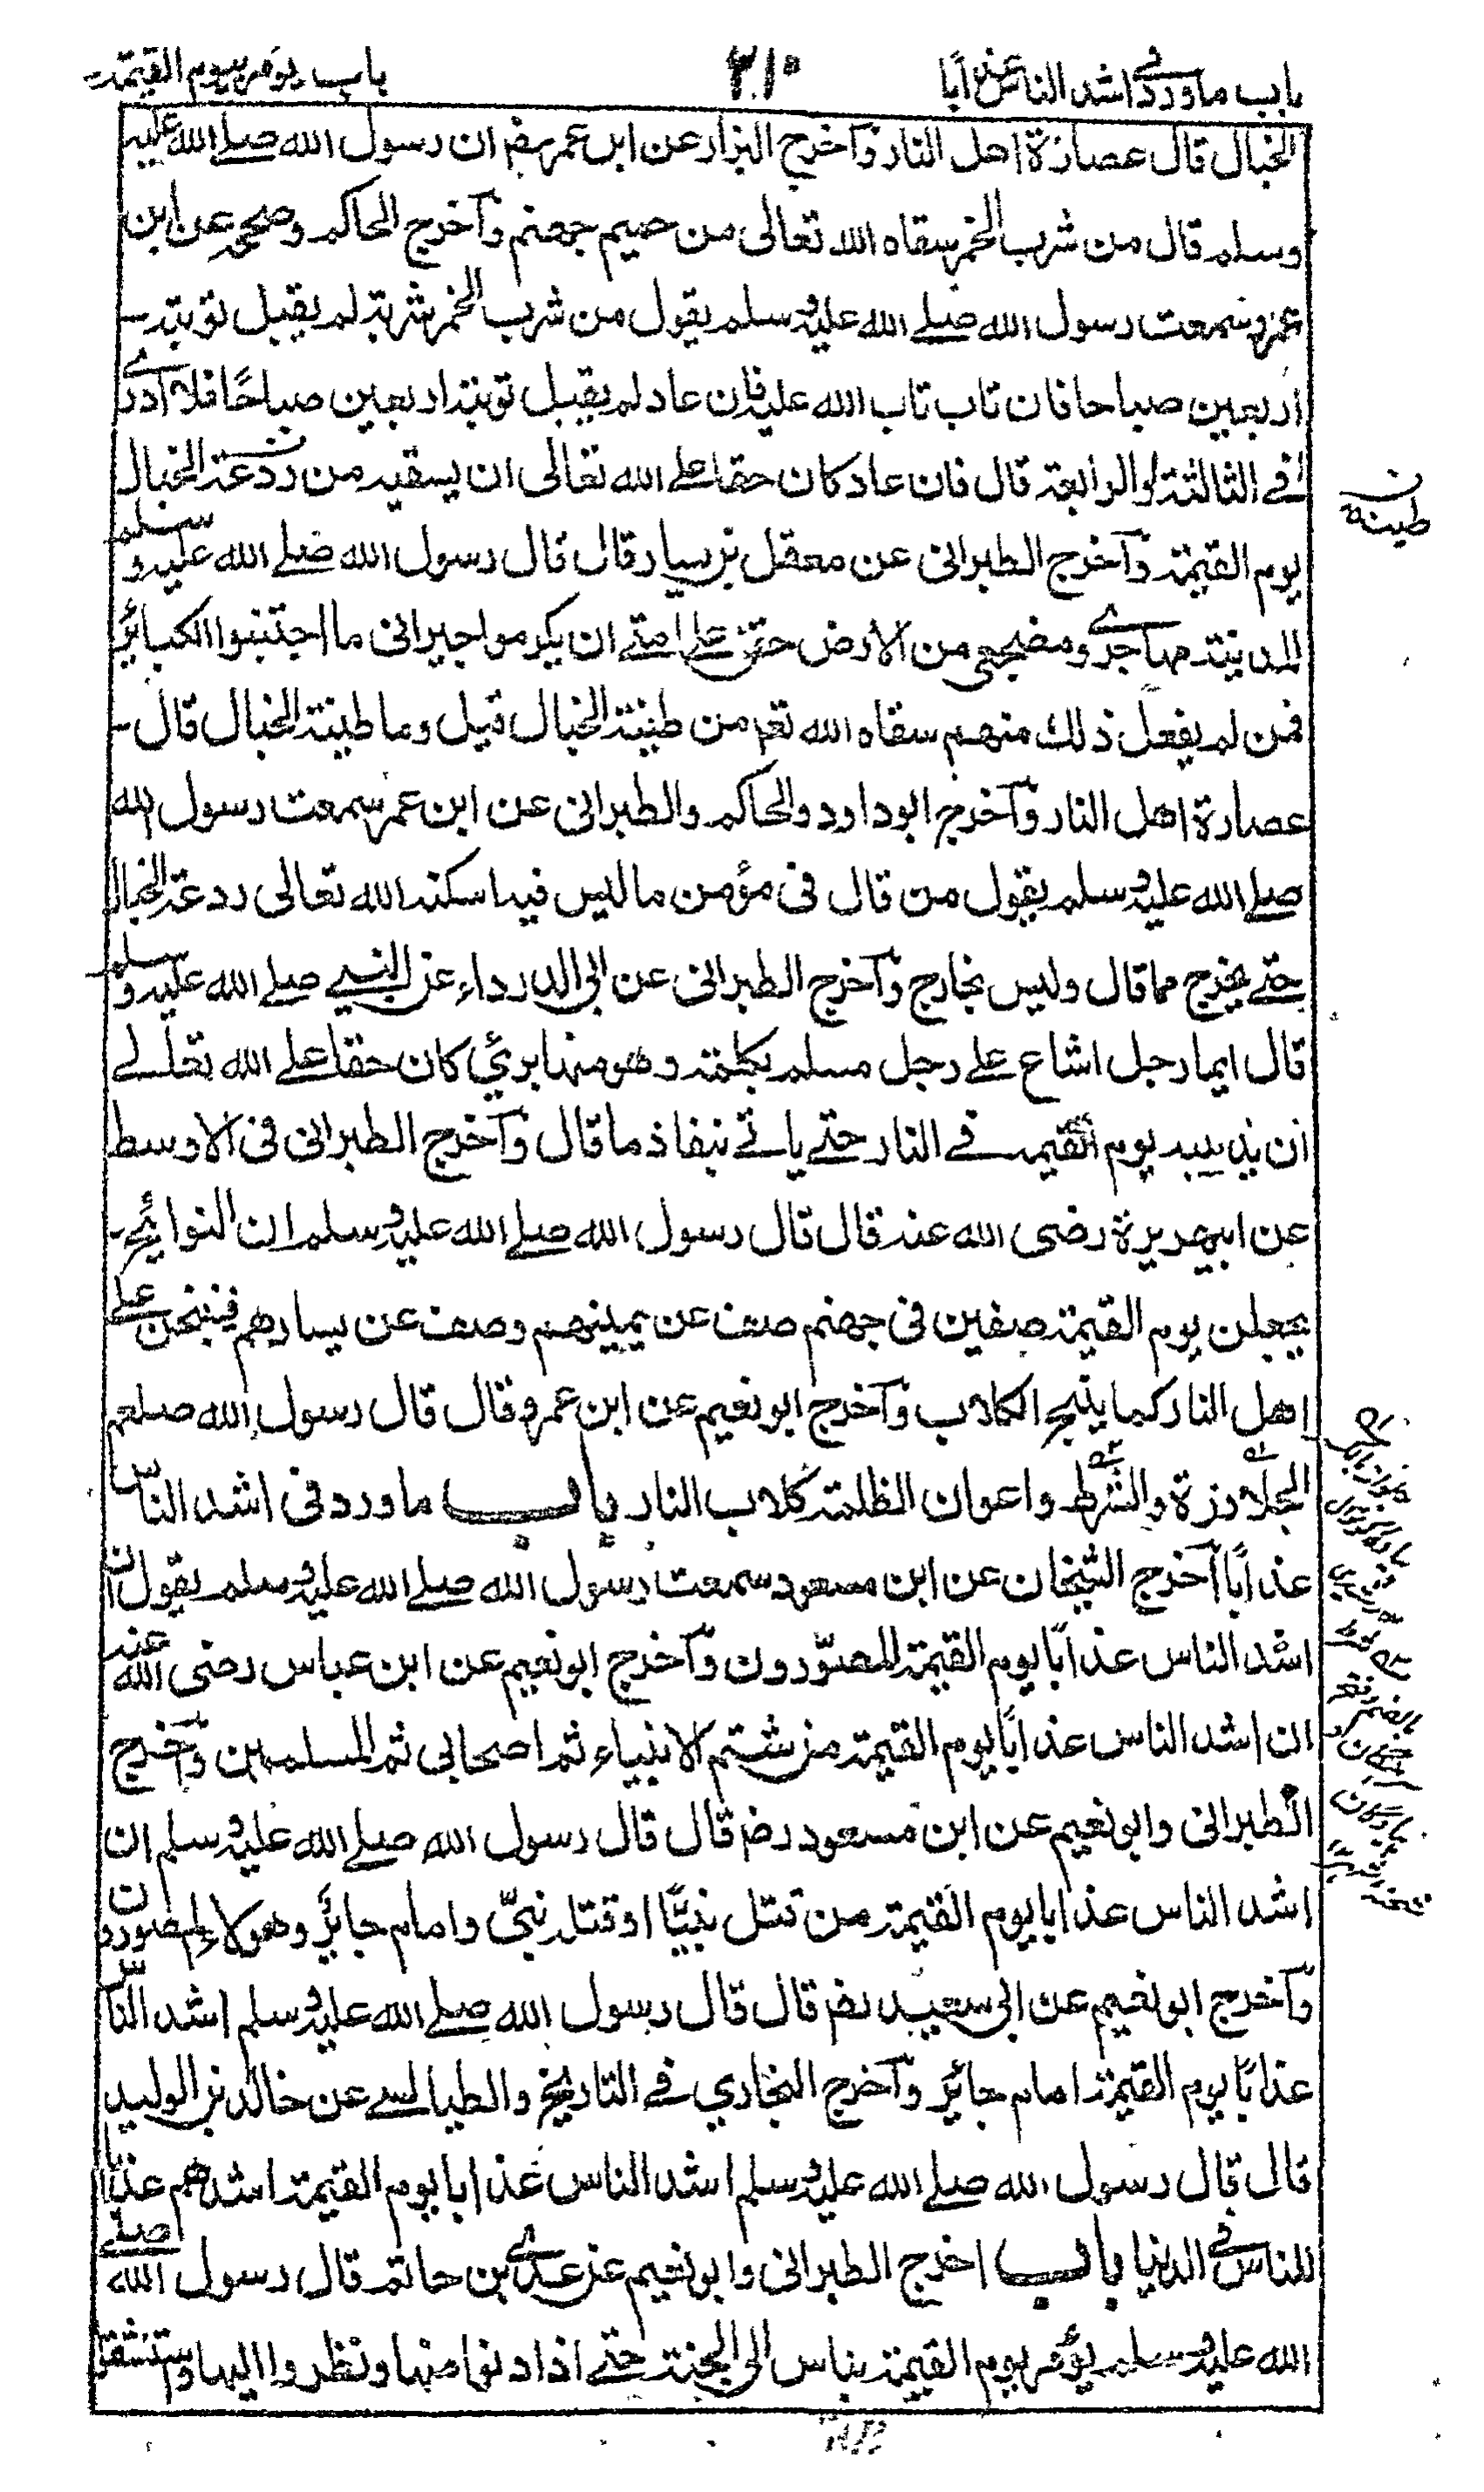 باب ماورد فی اشد الناس عذابا
٢١٠
باب یؤمر یوم القیمة
الخبال قال عصارة اهل النار وآخرج البزار عن ابن عمر رضـ ان رسول الله صلے الله علیه
وسلم قال من شرب الخمر سقاه الله تعالی من حمیم جهنم وآخرج الحاکم وصححه عن ابن
عمرو سمعت رسول الله صلے الله علیه وسلم یقول من شرب الخمر شربة لم یقبل توبته
اربعین صباحا فان تاب تاب الله علیه فان عاد لم یقبل توبته اربعین صباحًا فلا آدری
افے الثالثة او الرابعة قال فان عاد کان حقا علے الله تعالی ان یسقیه من ردغة الخبال
طینة
یوم القیمة وآخرج الطبرانی عن معقل بن یسار قال قال رسول الله صلے الله علیه وسلم
المدینة مهاجری ومضجعی من الارض حق علے امتے ان یکرموا جیرانی ما اجتنبوا الکبائر
فمن لم یفعل ذلك منهم سقاه الله تعـ من طینة الخبال قیل وما طینة الخبال قال
عصارة اهل النار وآخرج ابو داود والحاکم والطبرانی عن ابن عمر سمعت رسول الله
صلے الله علیه وسلم یقول من قال فی مؤمن ما لیس فیه اسکنه الله تعالی ردغة الخبال
حتے یخرج مما قال ولیس بخارج وآخرج الطبرانی عن ابی الدرداء عن النبی صلے الله علیه وسلم
قال ایما رجل اشاع علے رجل مسلم بکلمة وهو منها برئ کان حقا علے الله تعالے
ان یذیبه یوم القیمة فے النار حتے یاتے بنفاذ ما قال وآخرج الطبرانی فی الاوسط
عن ابیهریرة رضی الله عنه قال قال رسول الله صلے الله علیه وسلم ان النوائح
یجعلن یوم القیمة صفین فی جهنم صف عن یمینهم وصف عن یسارهم فینبحن علے
اهل النار کما ینبح الکلاب وآخرج ابو نعیم عن ابن عمرو قال قال رسول الله صلعم
الجلاوزة والشرط واعوان الظلمة کلاب النار باب ما ورد فی اشد الناس
عذابًا آخرج الشیخان عن ابن مسعود سمعت رسول الله صلے الله علیه وسلم یقول ان
اشد الناس عذابًا یوم القیمة المصوّرون وآخرج ابو نعیم عن ابن عباس رضی الله عنه
ان اشد الناس عذابًا یوم القیمة من شتم الانبیاء ثم اصحابی ثم المسلمین وآخرج
الطبرانی وابو نعیم عن ابن مسعود رضـ قال قال رسول الله صلے الله علیه وسلم ان
اشد الناس عذابا یوم القیمة من قتل نبیًّا او قتله نبیّ وامام جائر وهولاء المصورون
وآخرج ابو نعیم عن ابی سعید رضـ قال قال رسول الله صلے الله علیه وسلم اشد الناس
عذابًا یوم القیمة امام جائر وآخرج البخاری فے التاریخ والطیالسے عن خالد بن الولید
قال قال رسول الله صلے الله علیه وسلم اشد الناس عذابا یوم القیمة اشدهم عذابا
للناس فی الدنیا باب اخرج الطبرانی وابو نعیم عن عدی بن حاتم قال رسول الله صلے
الله علیه وسلم یؤمر یوم القیمة بناس الی الجنة حتے اذا دنوا منها ونظروا الیها واستنشقوا